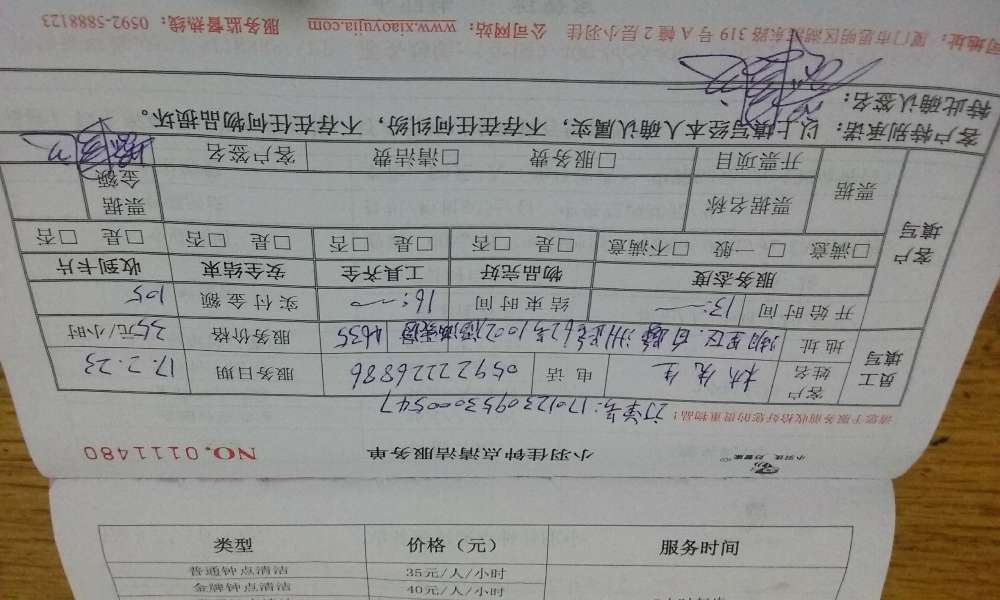 小羽佳 好管家
小羽佳钟点清洁服务单 NO.0111480
请您于服务前收检好您的贵重物品! 订单号:170123095300547
员工填写 客户姓名 林先生 电话 05922226886 服务日期 17.2.23
地址 服务价格 35元/小时
开始时间 13: 结束时间 16: 实付金额 105
客户填写 服务态度 物品完好 工具齐全 安全结束 收到卡片
□满意 □一般 □不满意 □是 □否 □是 □否 □是 □否 □是 □否
票据 票据名称 票据金额
开票项目 □服务费 □清洁费 客户签名
客户特别承诺:以上填写经本人确认属实,不存在任何纠纷,不存在任何物品损坏。
特此确认签名:
司地址:厦门市思明区湖滨东路319号A幢2层小羽佳 公司网站:www.xiaoyujia.com 服务监督热线:0592-5888123
类型 价格(元) 服务时间
普通钟点清洁 35元/人/小时
金牌钟点清洁 40元/人/小时